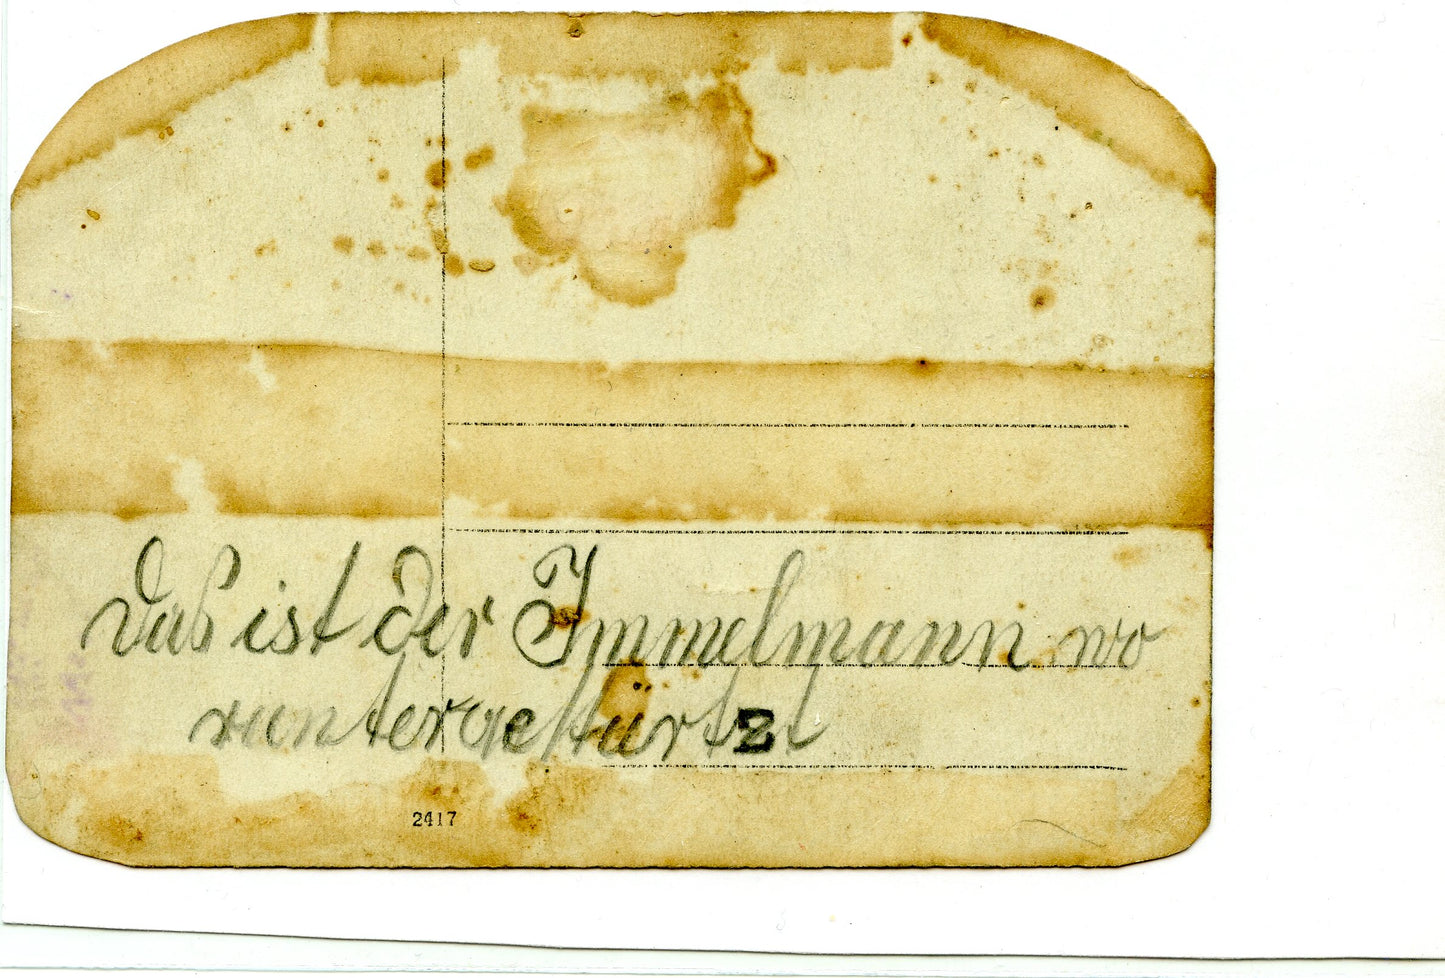 Daß ist der Immelmann wo
runtergestürtzt
2417